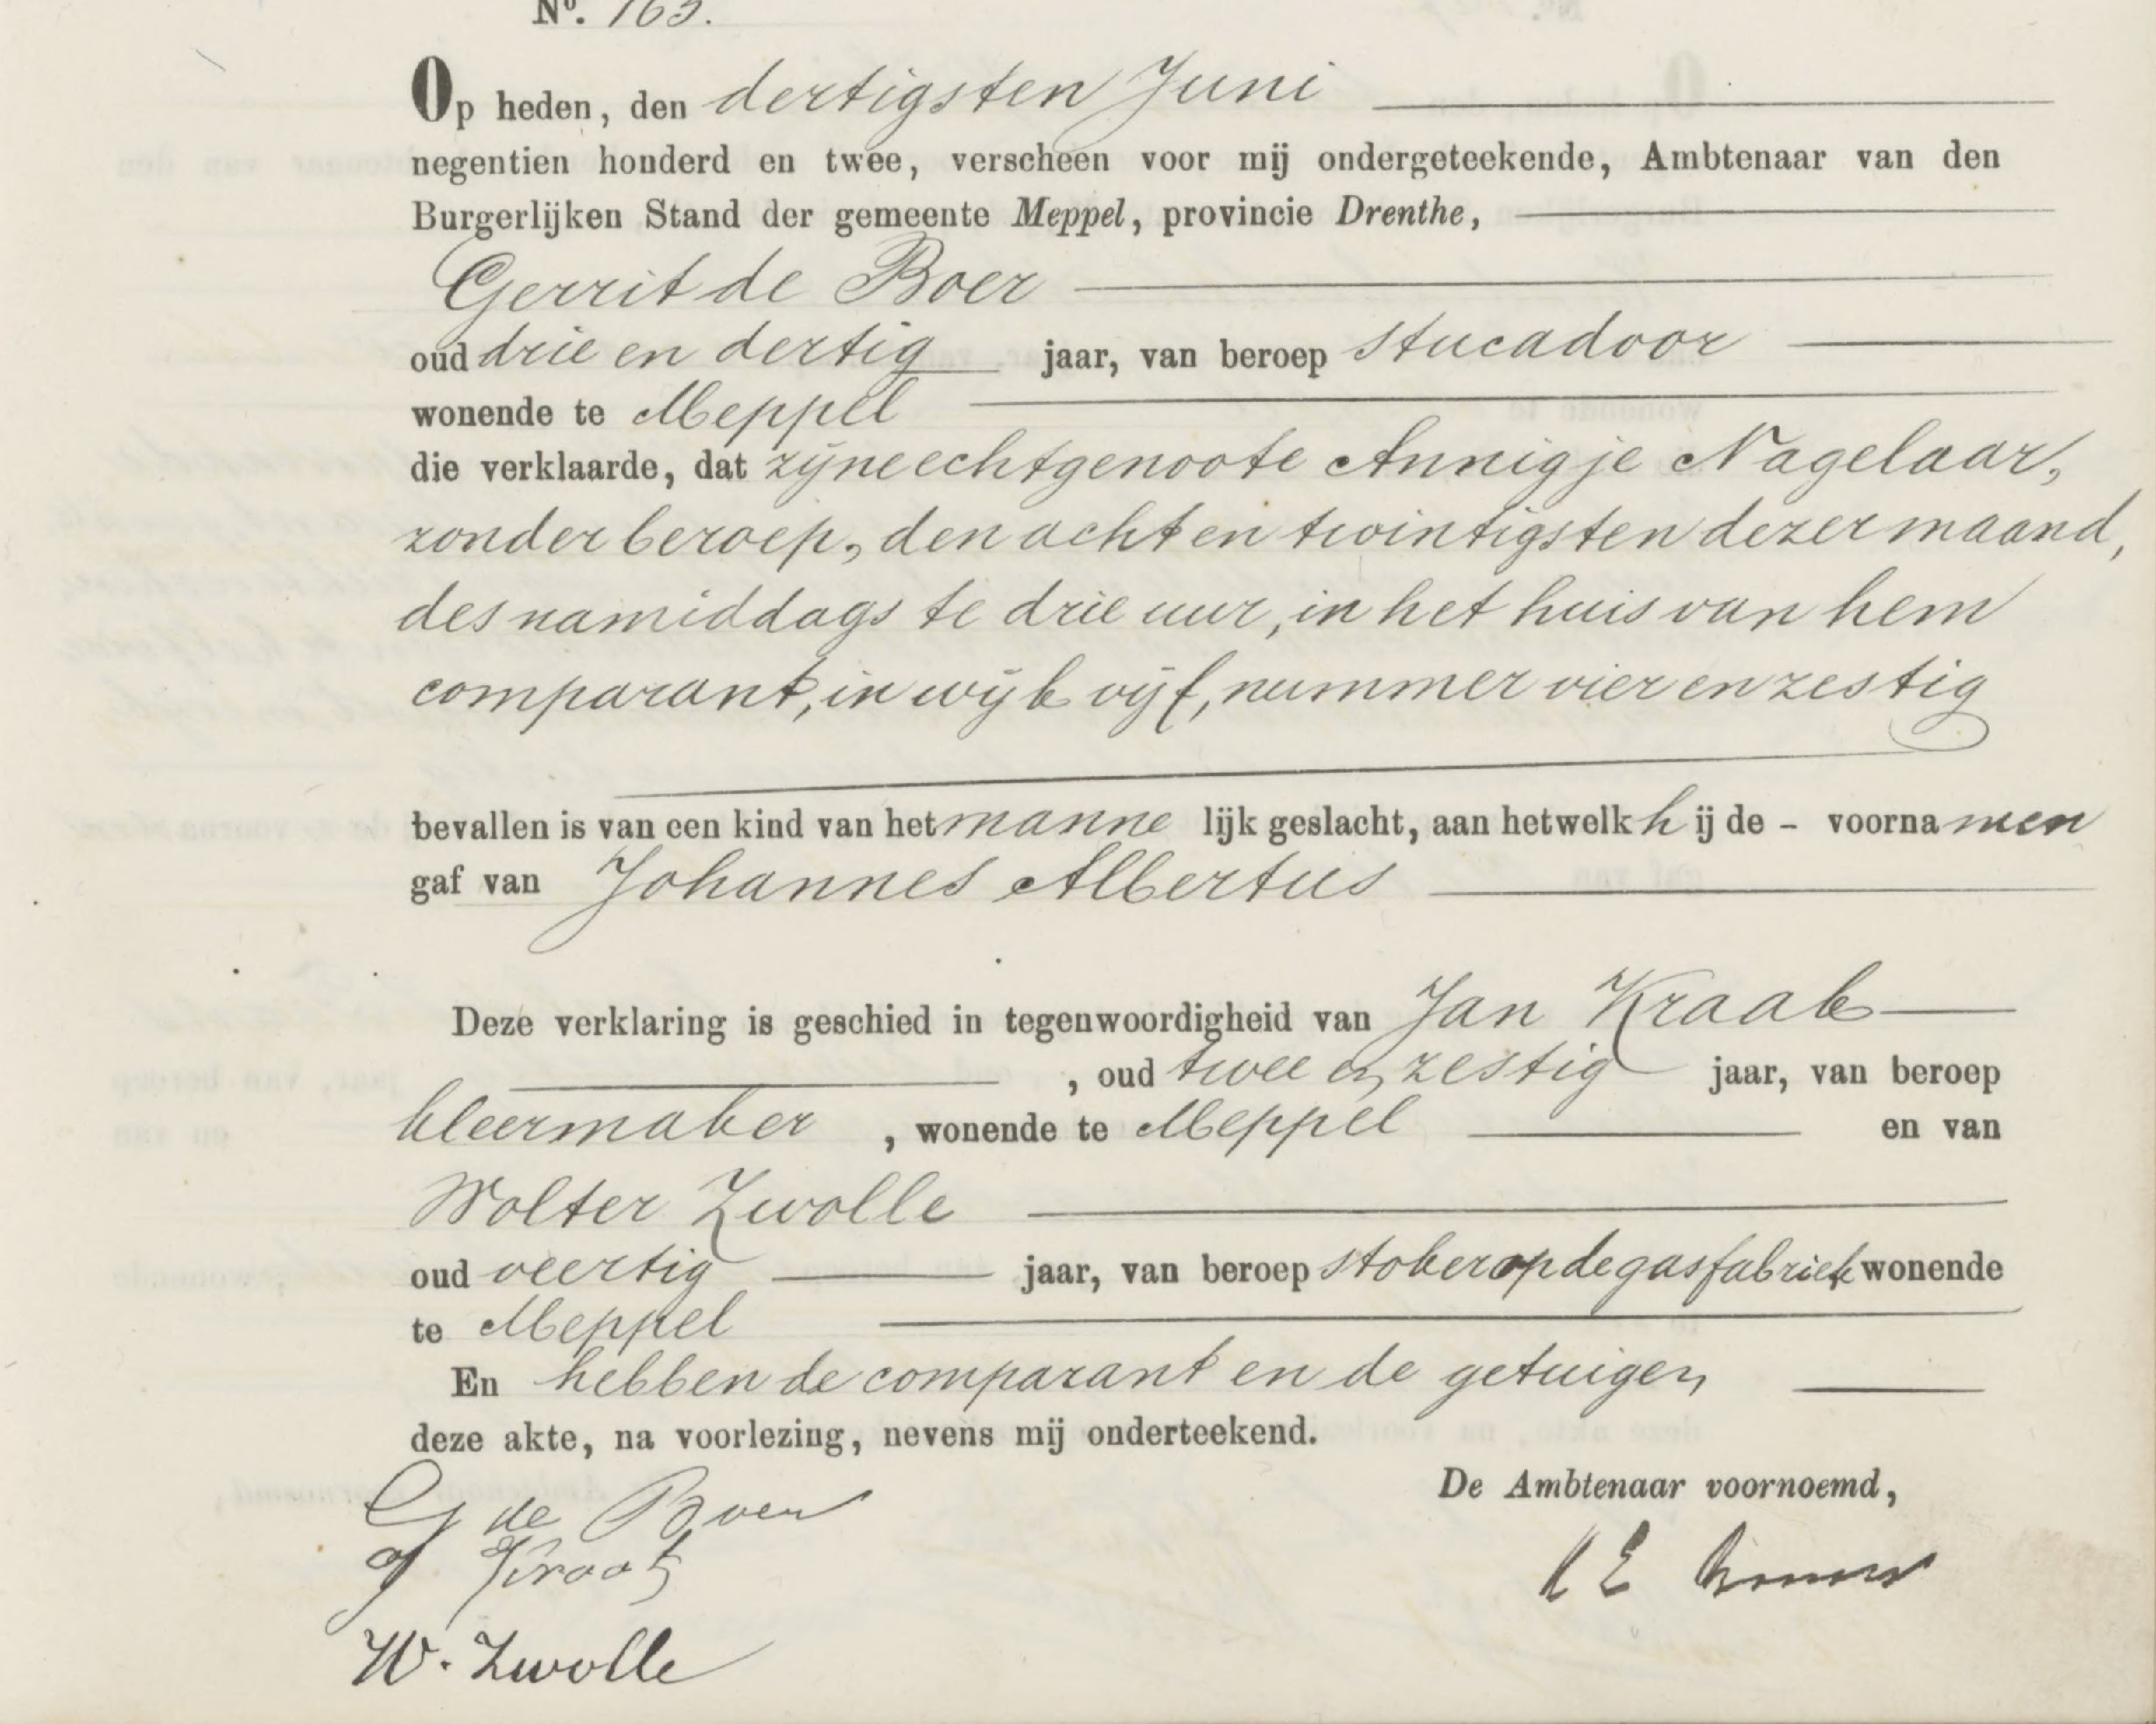 Nº. 163.
Op heden, den dertigsten Juni
negentien honderd en twee, verscheen voor mij ondergeteekende, Ambtenaar van den
Burgerlijken Stand der gemeente Meppel, provincie Drenthe,
Gerrit de Boer
oud drie en dertig jaar, van beroep stucadoor
wonende te Meppel
die verklaarde, dat zijne echtgenoote Annigje Nagelaar,
zonder beroep, den acht en twintigsten dezer maand,
des namiddags te drie uur, in het huis van hem
comparant, in wijk vijf, nummer vier en zestig
bevallen is van een kind van het mannelijk geslacht, aan hetwelk hij de - voornamen
gaf van Johannes Albertus
Deze verklaring is geschied in tegenwoordigheid van Jan Kraak
, oud twee en zestig jaar, van beroep
kleermaker, wonende te Meppel en van
Wolter Zwolle
oud veertig jaar, van beroep stoker op de gasfabriek wonende
te Meppel
En hebben de comparant en de getuigen
deze akte, na voorlezing, nevens mij onderteekend.
De Ambtenaar voornoemd,
G de Boer
J Kraak
W. Zwolle